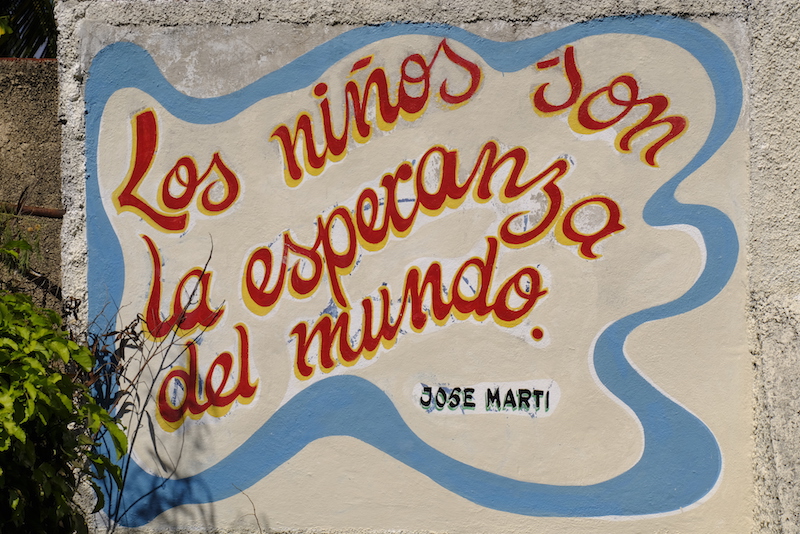 Los niños son
la esperanza
del mundo.
JOSE MARTI